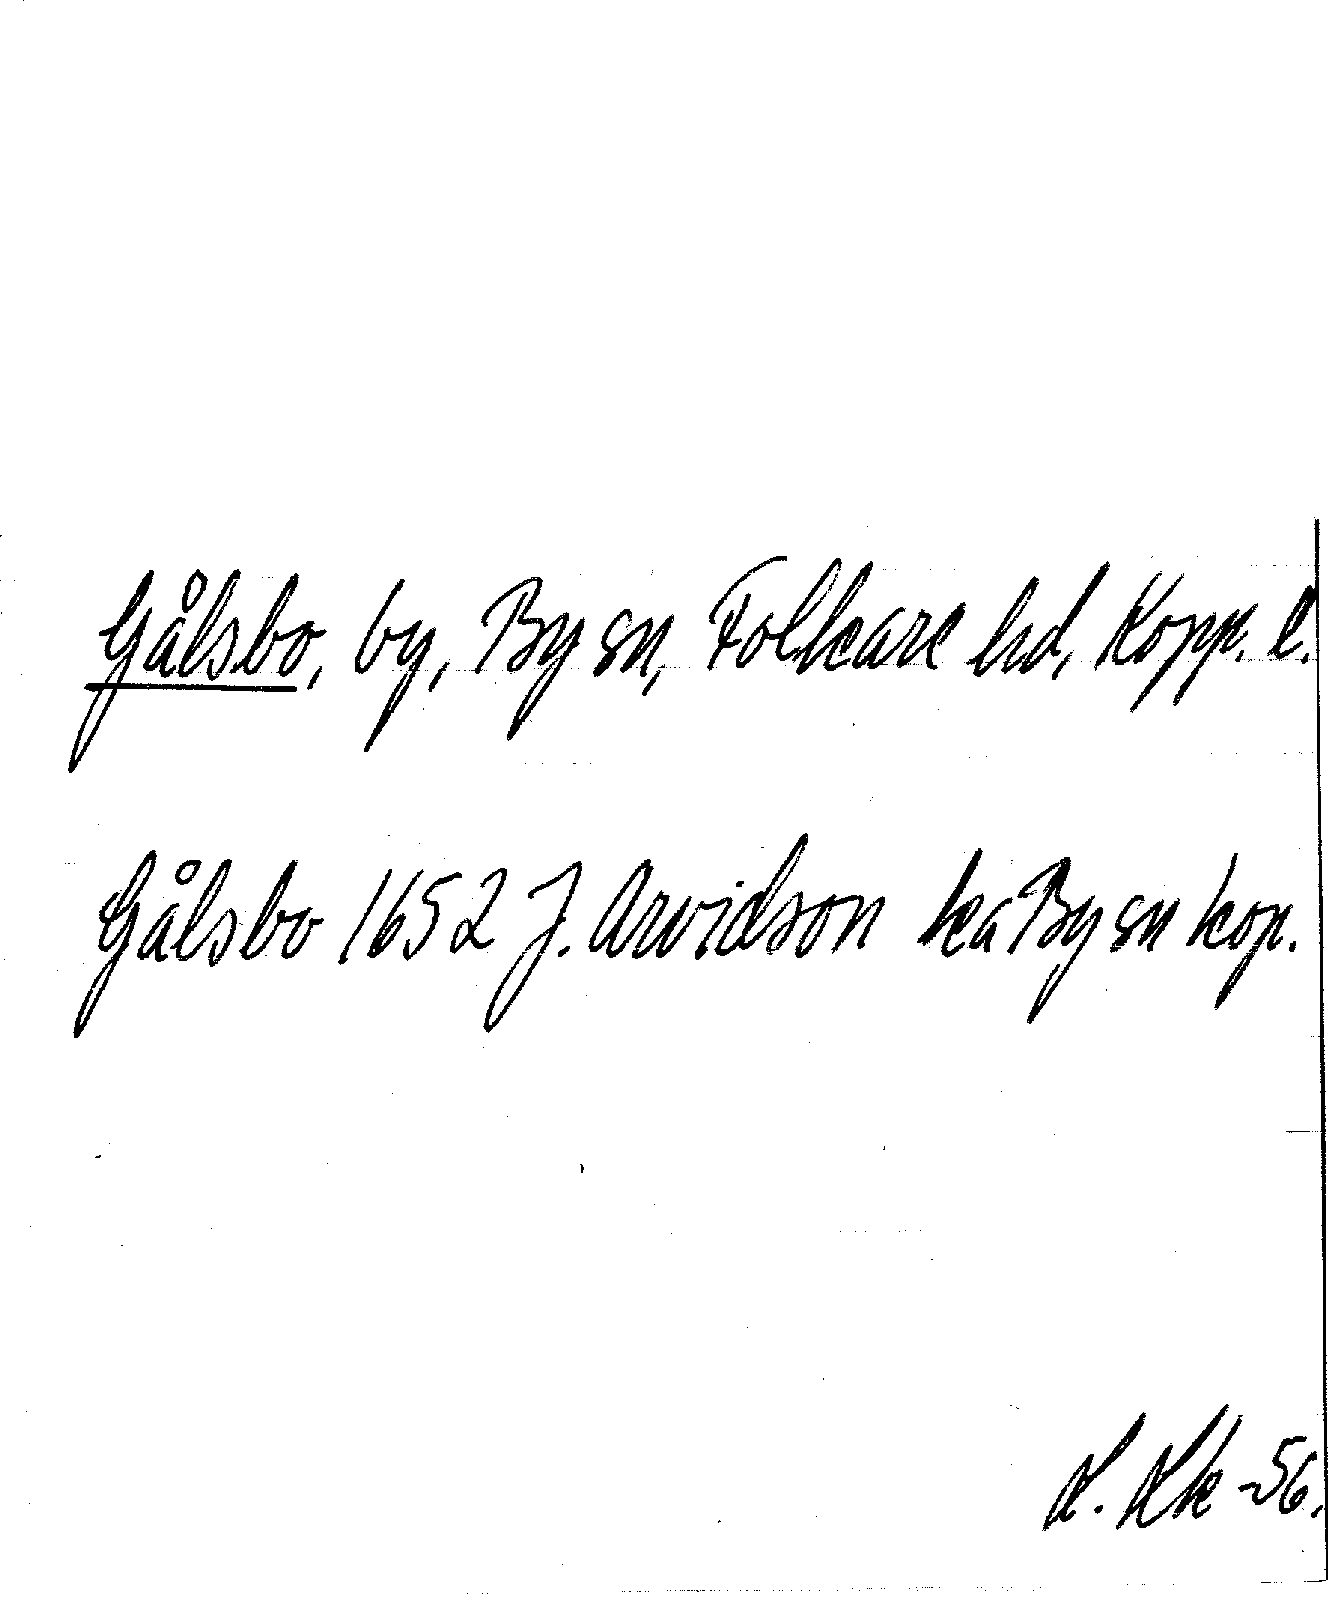 Gålsbo, by, By sn, Folkare hd, Kopp. l.
Gålsbo 1652 J. Arvidson ka By sn kop.
-56.